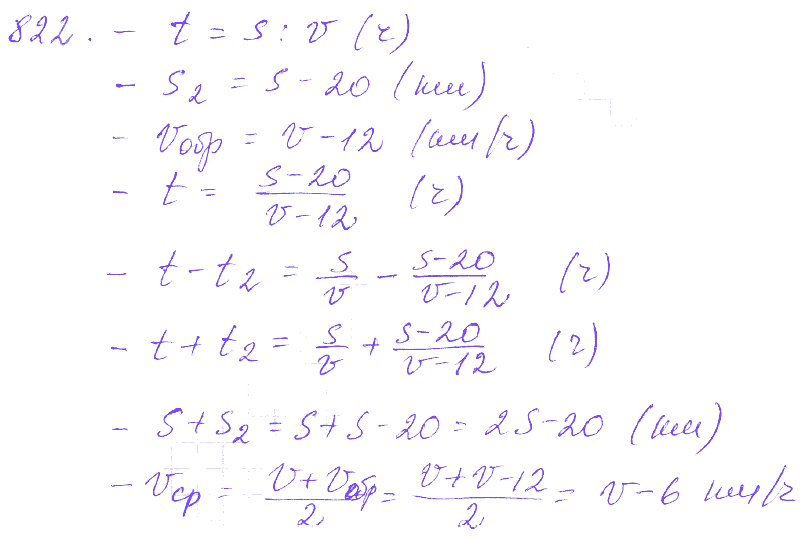 822. - t = s : v (ч)
- s₂ = s - 20 (км)
- vобр = v - 12 (км/ч)
- t = (s-20)/(v-12) (ч)
- t - t₂ = s/v - (s-20)/(v-12) (ч)
- t + t₂ = s/v + (s-20)/(v-12) (ч)
- s + s₂ = s + s - 20 = 2s - 20 (км)
- vср = (v + vобр)/2 = (v + v - 12)/2 = v - 6 км/ч